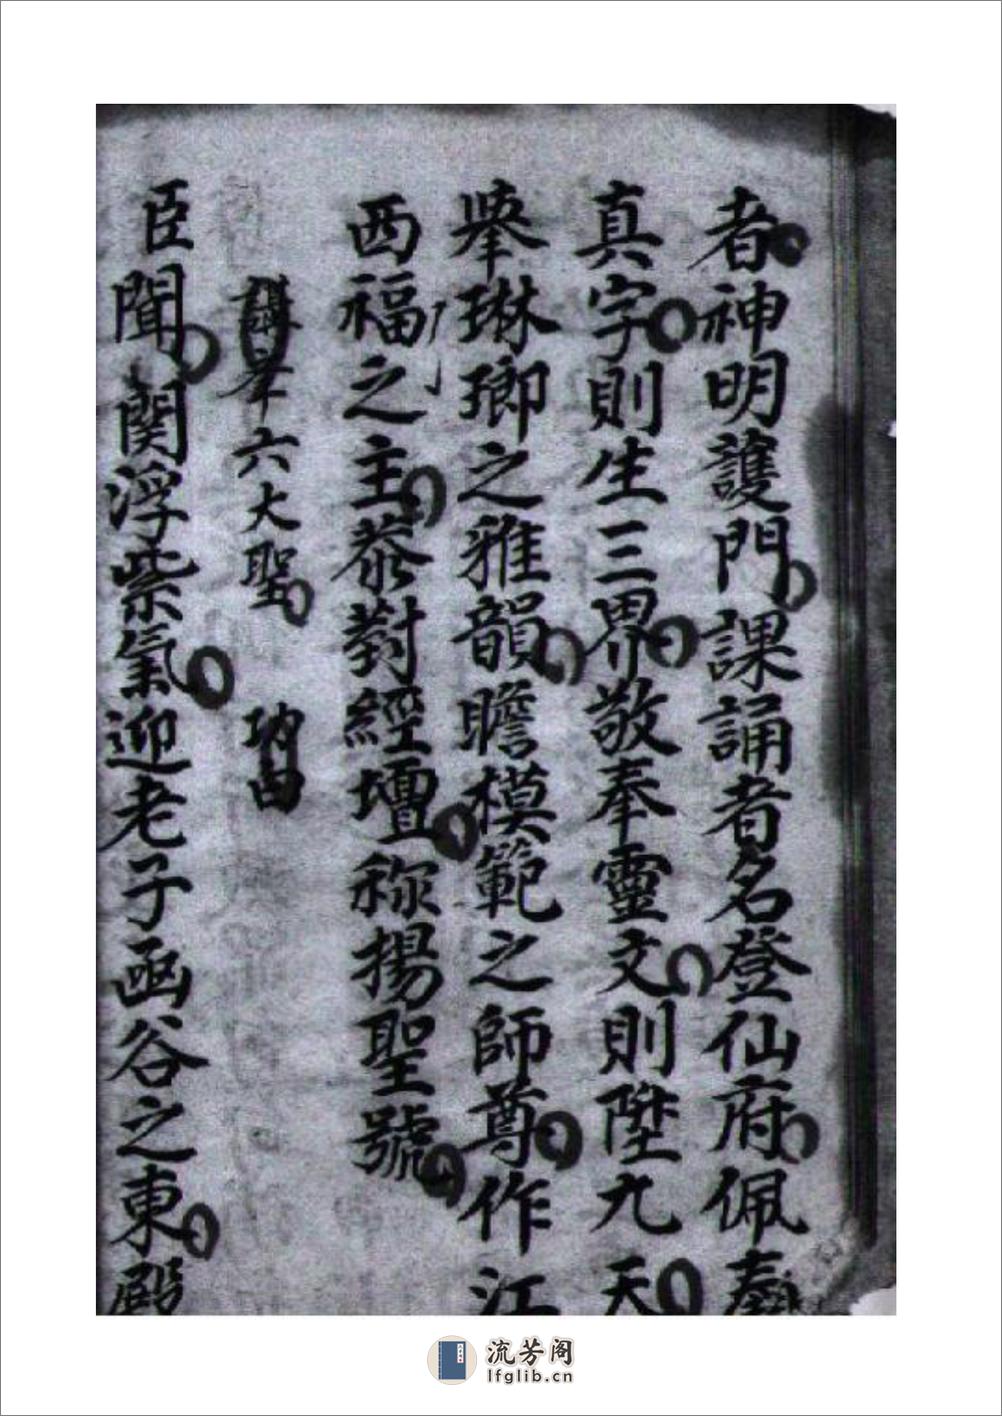 者神明護門課誦者名登仙府佩奉
真字則生三界敬奉靈文則陞九天
舉琳瑯之雅韻瞻模範之師尊作江
西福之主恭對經壇称揚聖號
講峯六大聖
臣聞関浮紫氣迎老子函谷之東殿
流芳阁
lfglib.cn